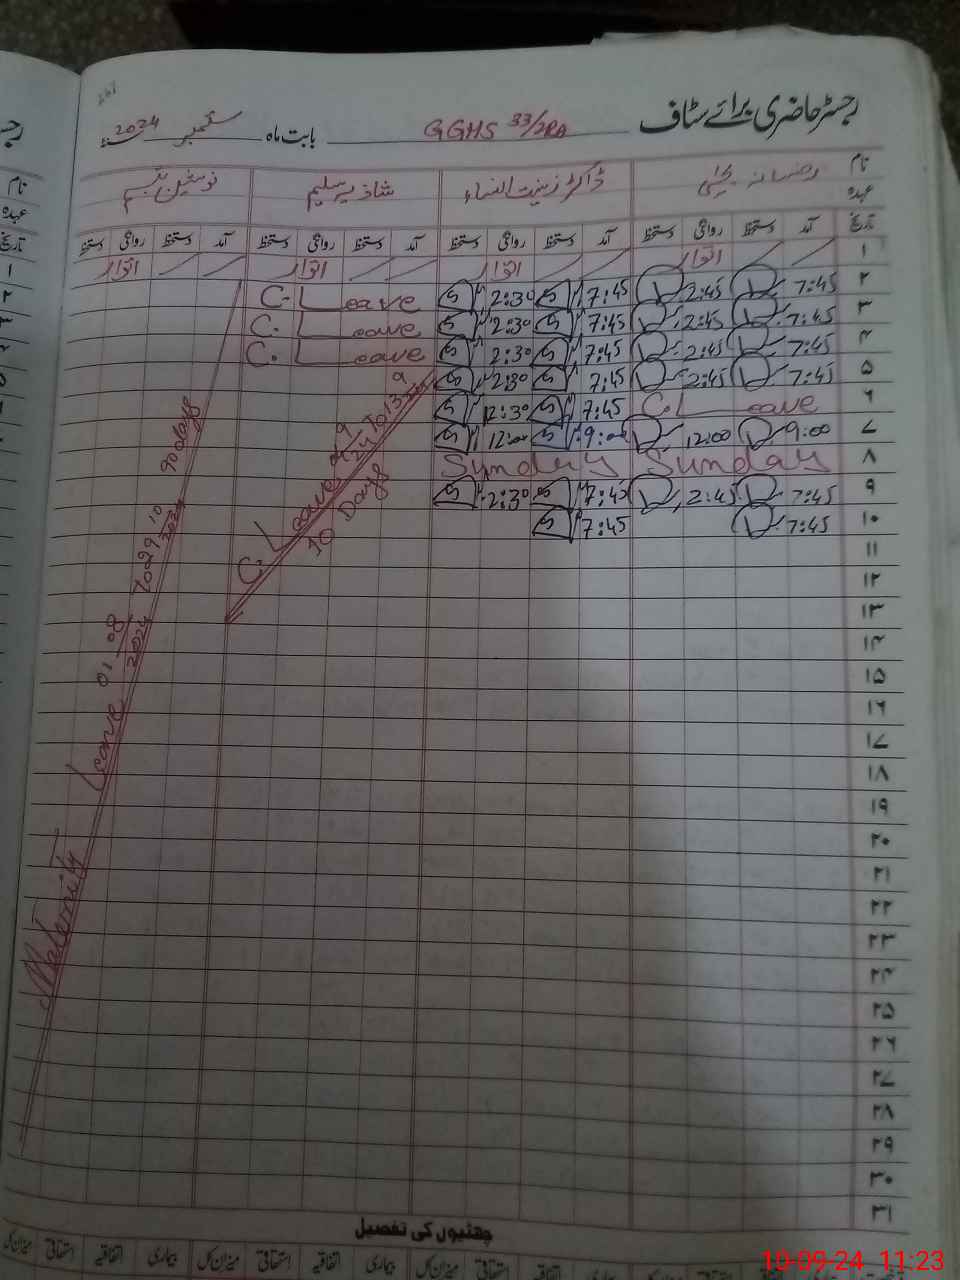 رجسٹر حاضری برائے سٹاف GGHS 33/2RA بابت ماہ ستمبر 2024
نام رخسانہ ڈاکٹر زینت النساء شازیہ سلیم
عہدہ
تاریخ آمد دستخط روانگی دستخط آمد دستخط روانگی دستخط آمد دستخط روانگی دستخط آمد دستخط روانگی دستخط
۱ اتوار اتوار اتوار اتوار
۲ 7:45 2:45 7:45 2:30 C. Leave
۳ 7:45 2:45 7:45 2:30 C. Leave
۴ 7:45 2:45 7:45 2:30 C. Leave
۵ 7:45 2:45 7:45 2:30
۶ C. Leave 7:45 2:30
۷ 9:00 12:00 9:00 12:00
۸ Sunday Sunday
۹ 7:45 2:45 7:45 2:30
۱۰ 7:45 7:45
۱۱
۱۲
۱۳
۱۴
۱۵
۱۶
۱۷
۱۸
۱۹
۲۰
۲۱
۲۲
۲۳
۲۴
۲۵
۲۶
۲۷
۲۸
۲۹
۳۰
۳۱
C. Leave To 13
10 Days
Maternity Leave 01 08/2024 To 29 10/2024 90 days
چھٹیوں کی تفصیل
بیماری اتفاقیہ استحقاقی میزان کل بیماری اتفاقیہ استحقاقی میزان کل بیماری اتفاقیہ استحقاقی میزان کل
10-09-24 11:23